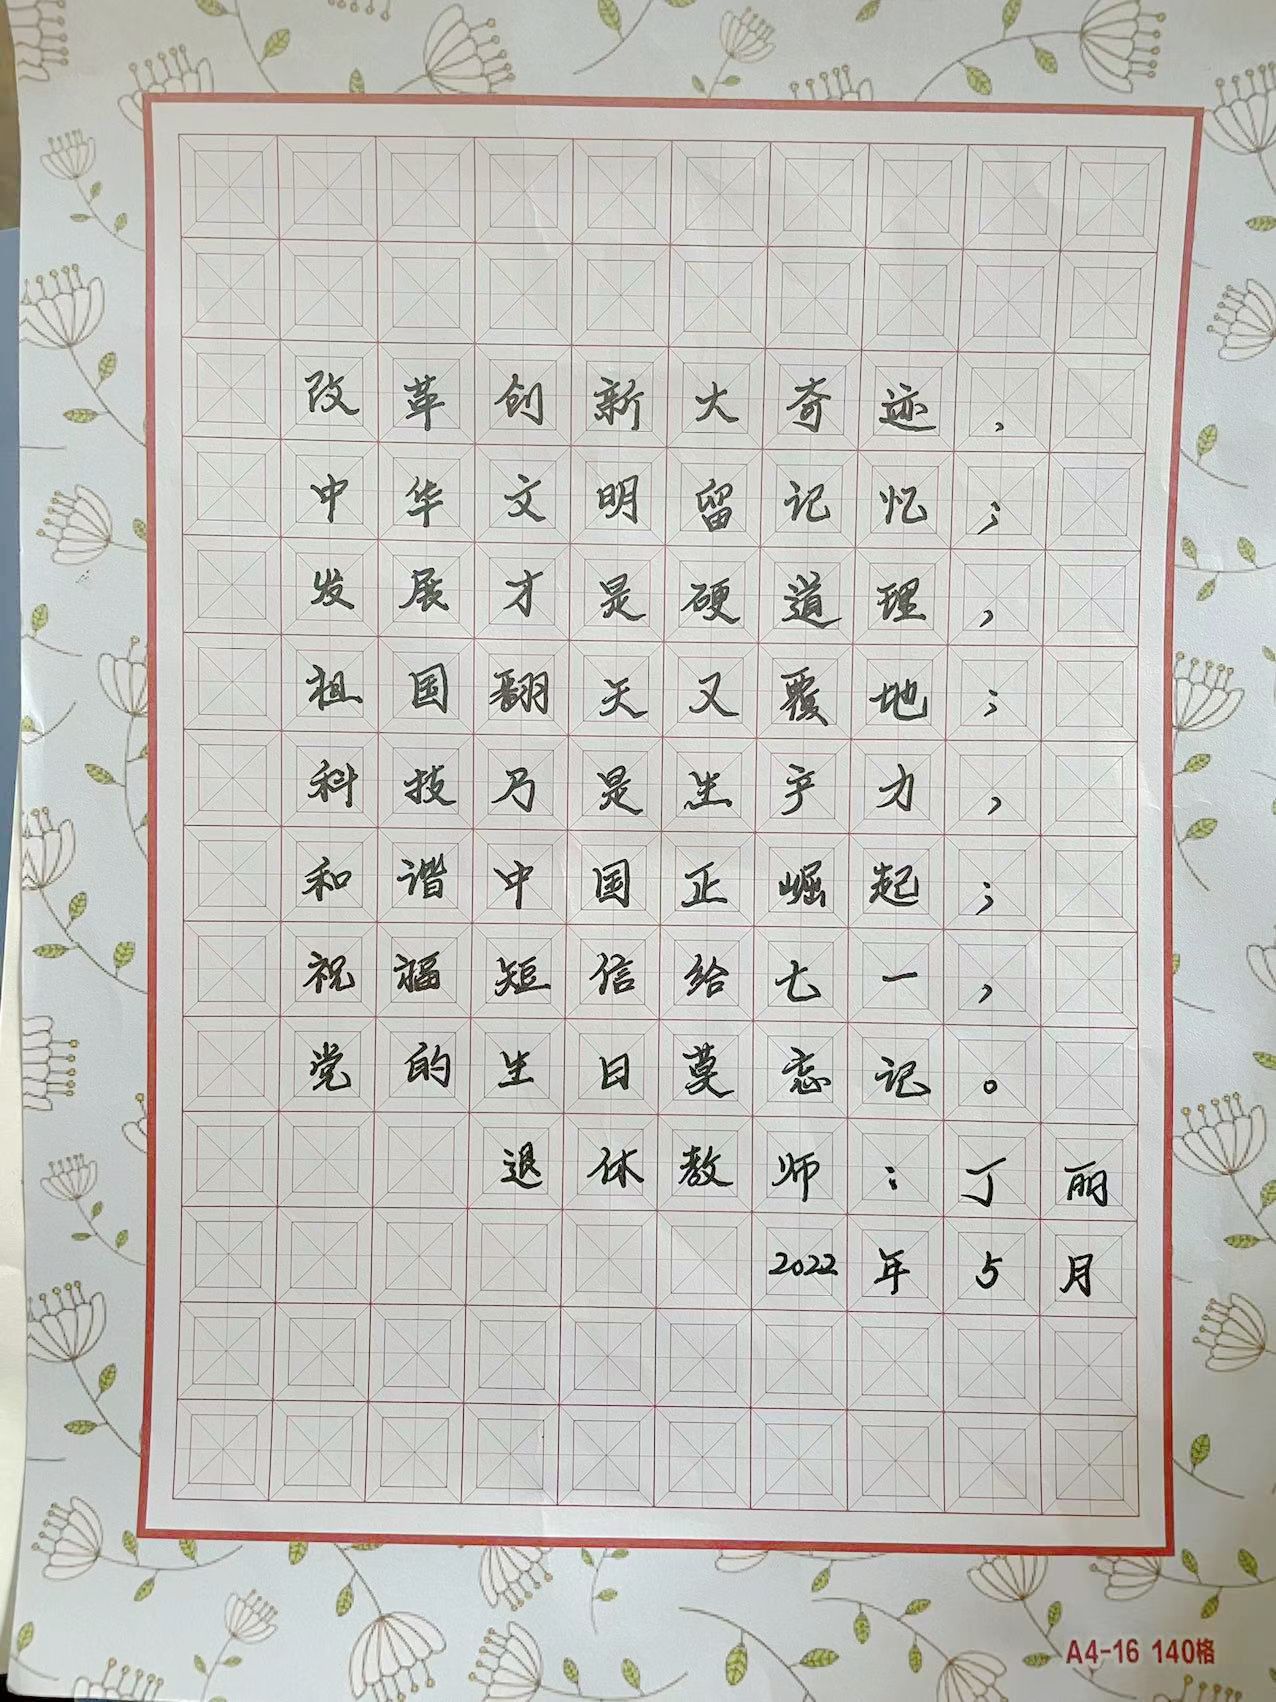 改革创新大奇迹，
中华文明留记忆；
发展才是硬道理，
祖国翻天又覆地；
科技乃是生产力，
和谐中国正崛起；
祝福短信给七一，
党的生日莫忘记。
退休教师：丁丽
2022年5月
A4-16 140格